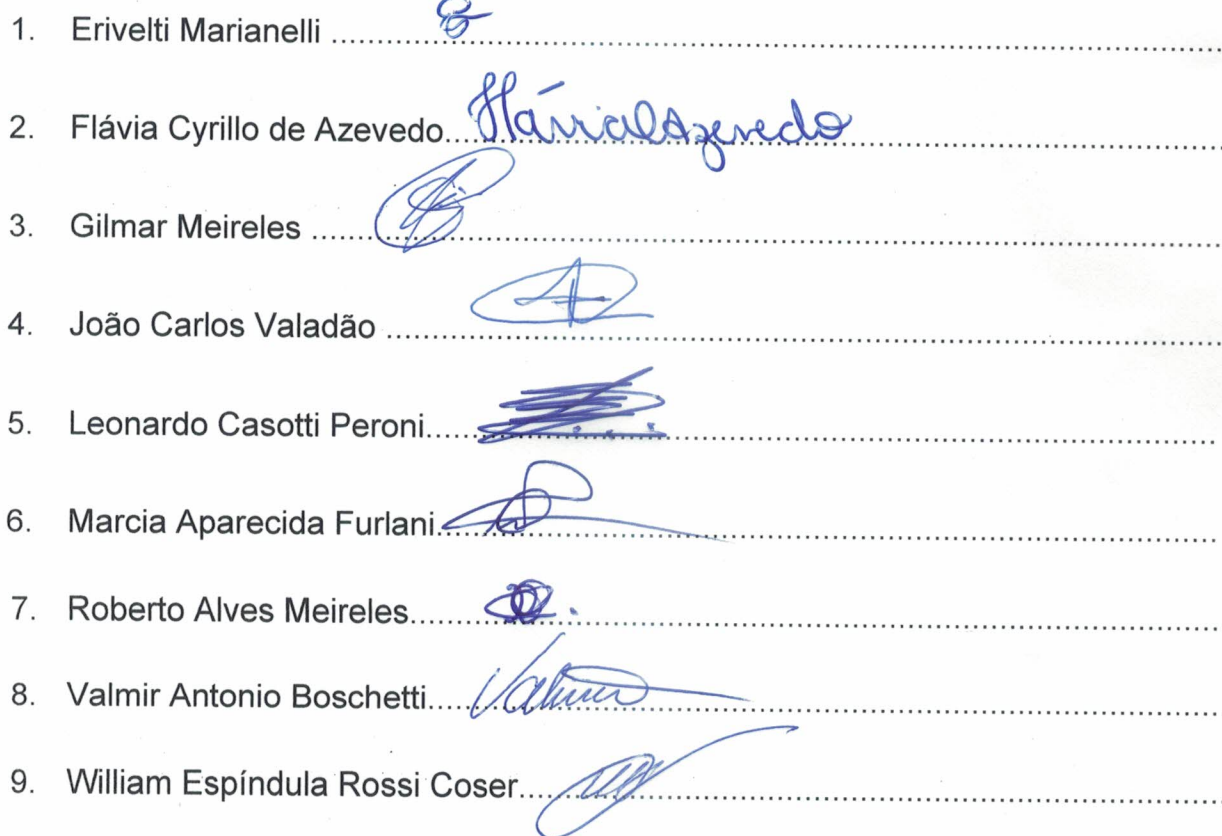 1. Erivelti Marianelli ........................................
2. Flávia Cyrillo de Azevedo.... FláviaCAzevedo ........................................
3. Gilmar Meireles ........................................
4. João Carlos Valadão ........................................
5. Leonardo Casotti Peroni........................................
6. Marcia Aparecida Furlani........................................
7. Roberto Alves Meireles........................................
8. Valmir Antonio Boschetti..... Valmir ........................................
9. William Espíndula Rossi Coser........................................